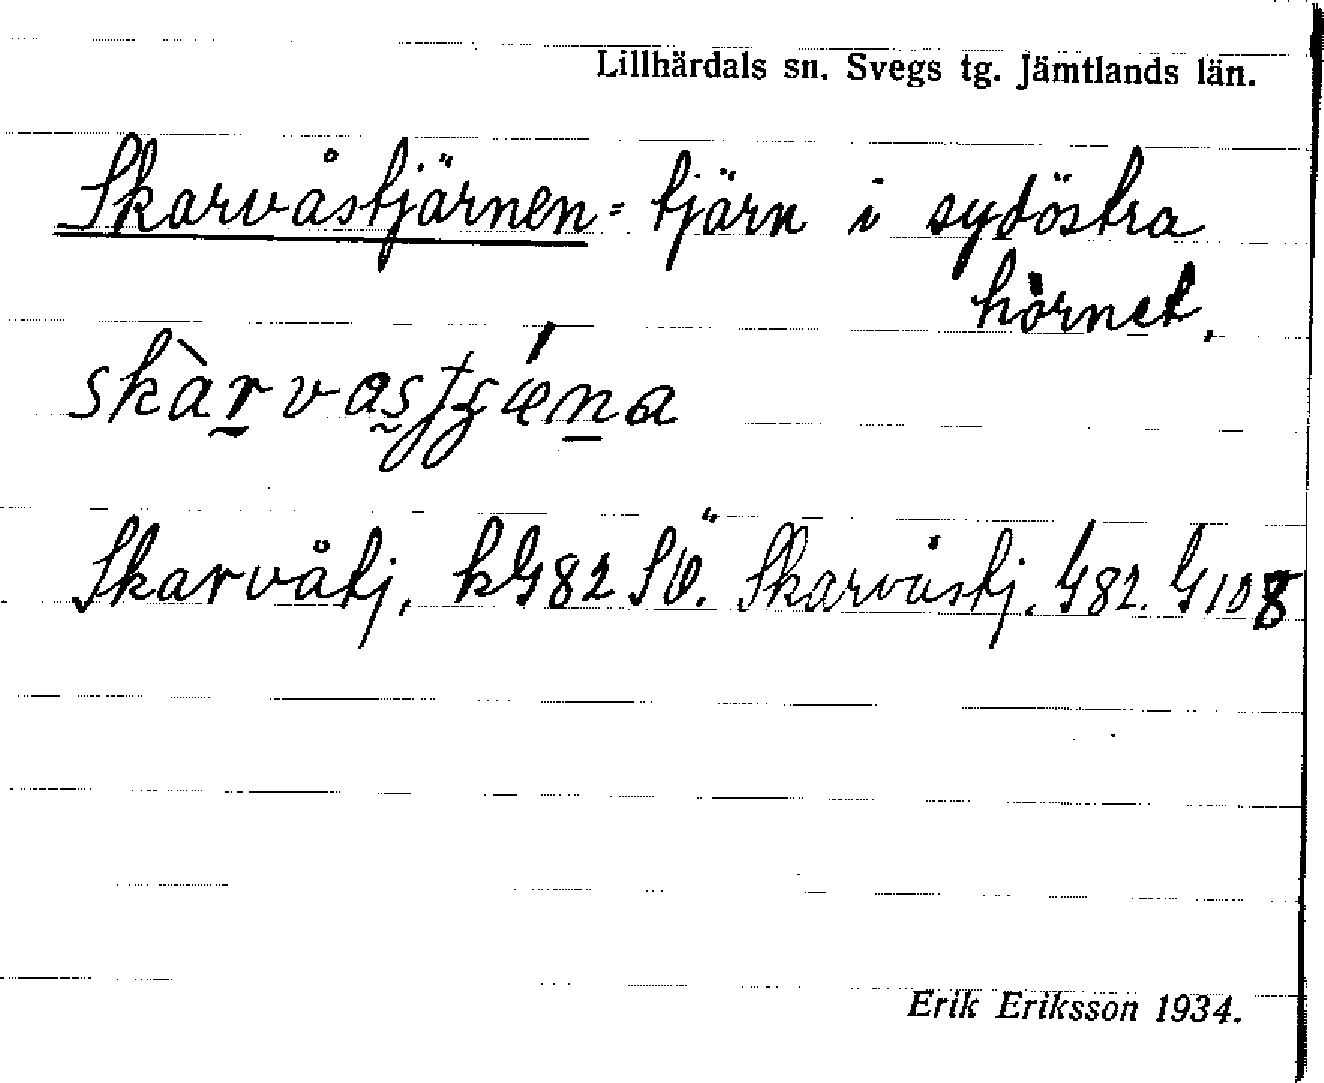 Lillhärdals sn. Svegs tg. Jämtlands län.
Skarvåstjärnen = tjärn i sydöstra
hörnet.
Skarvåtj. kG82 SÖ. Skarvåstj. G82. G108
Erik Eriksson 1934.